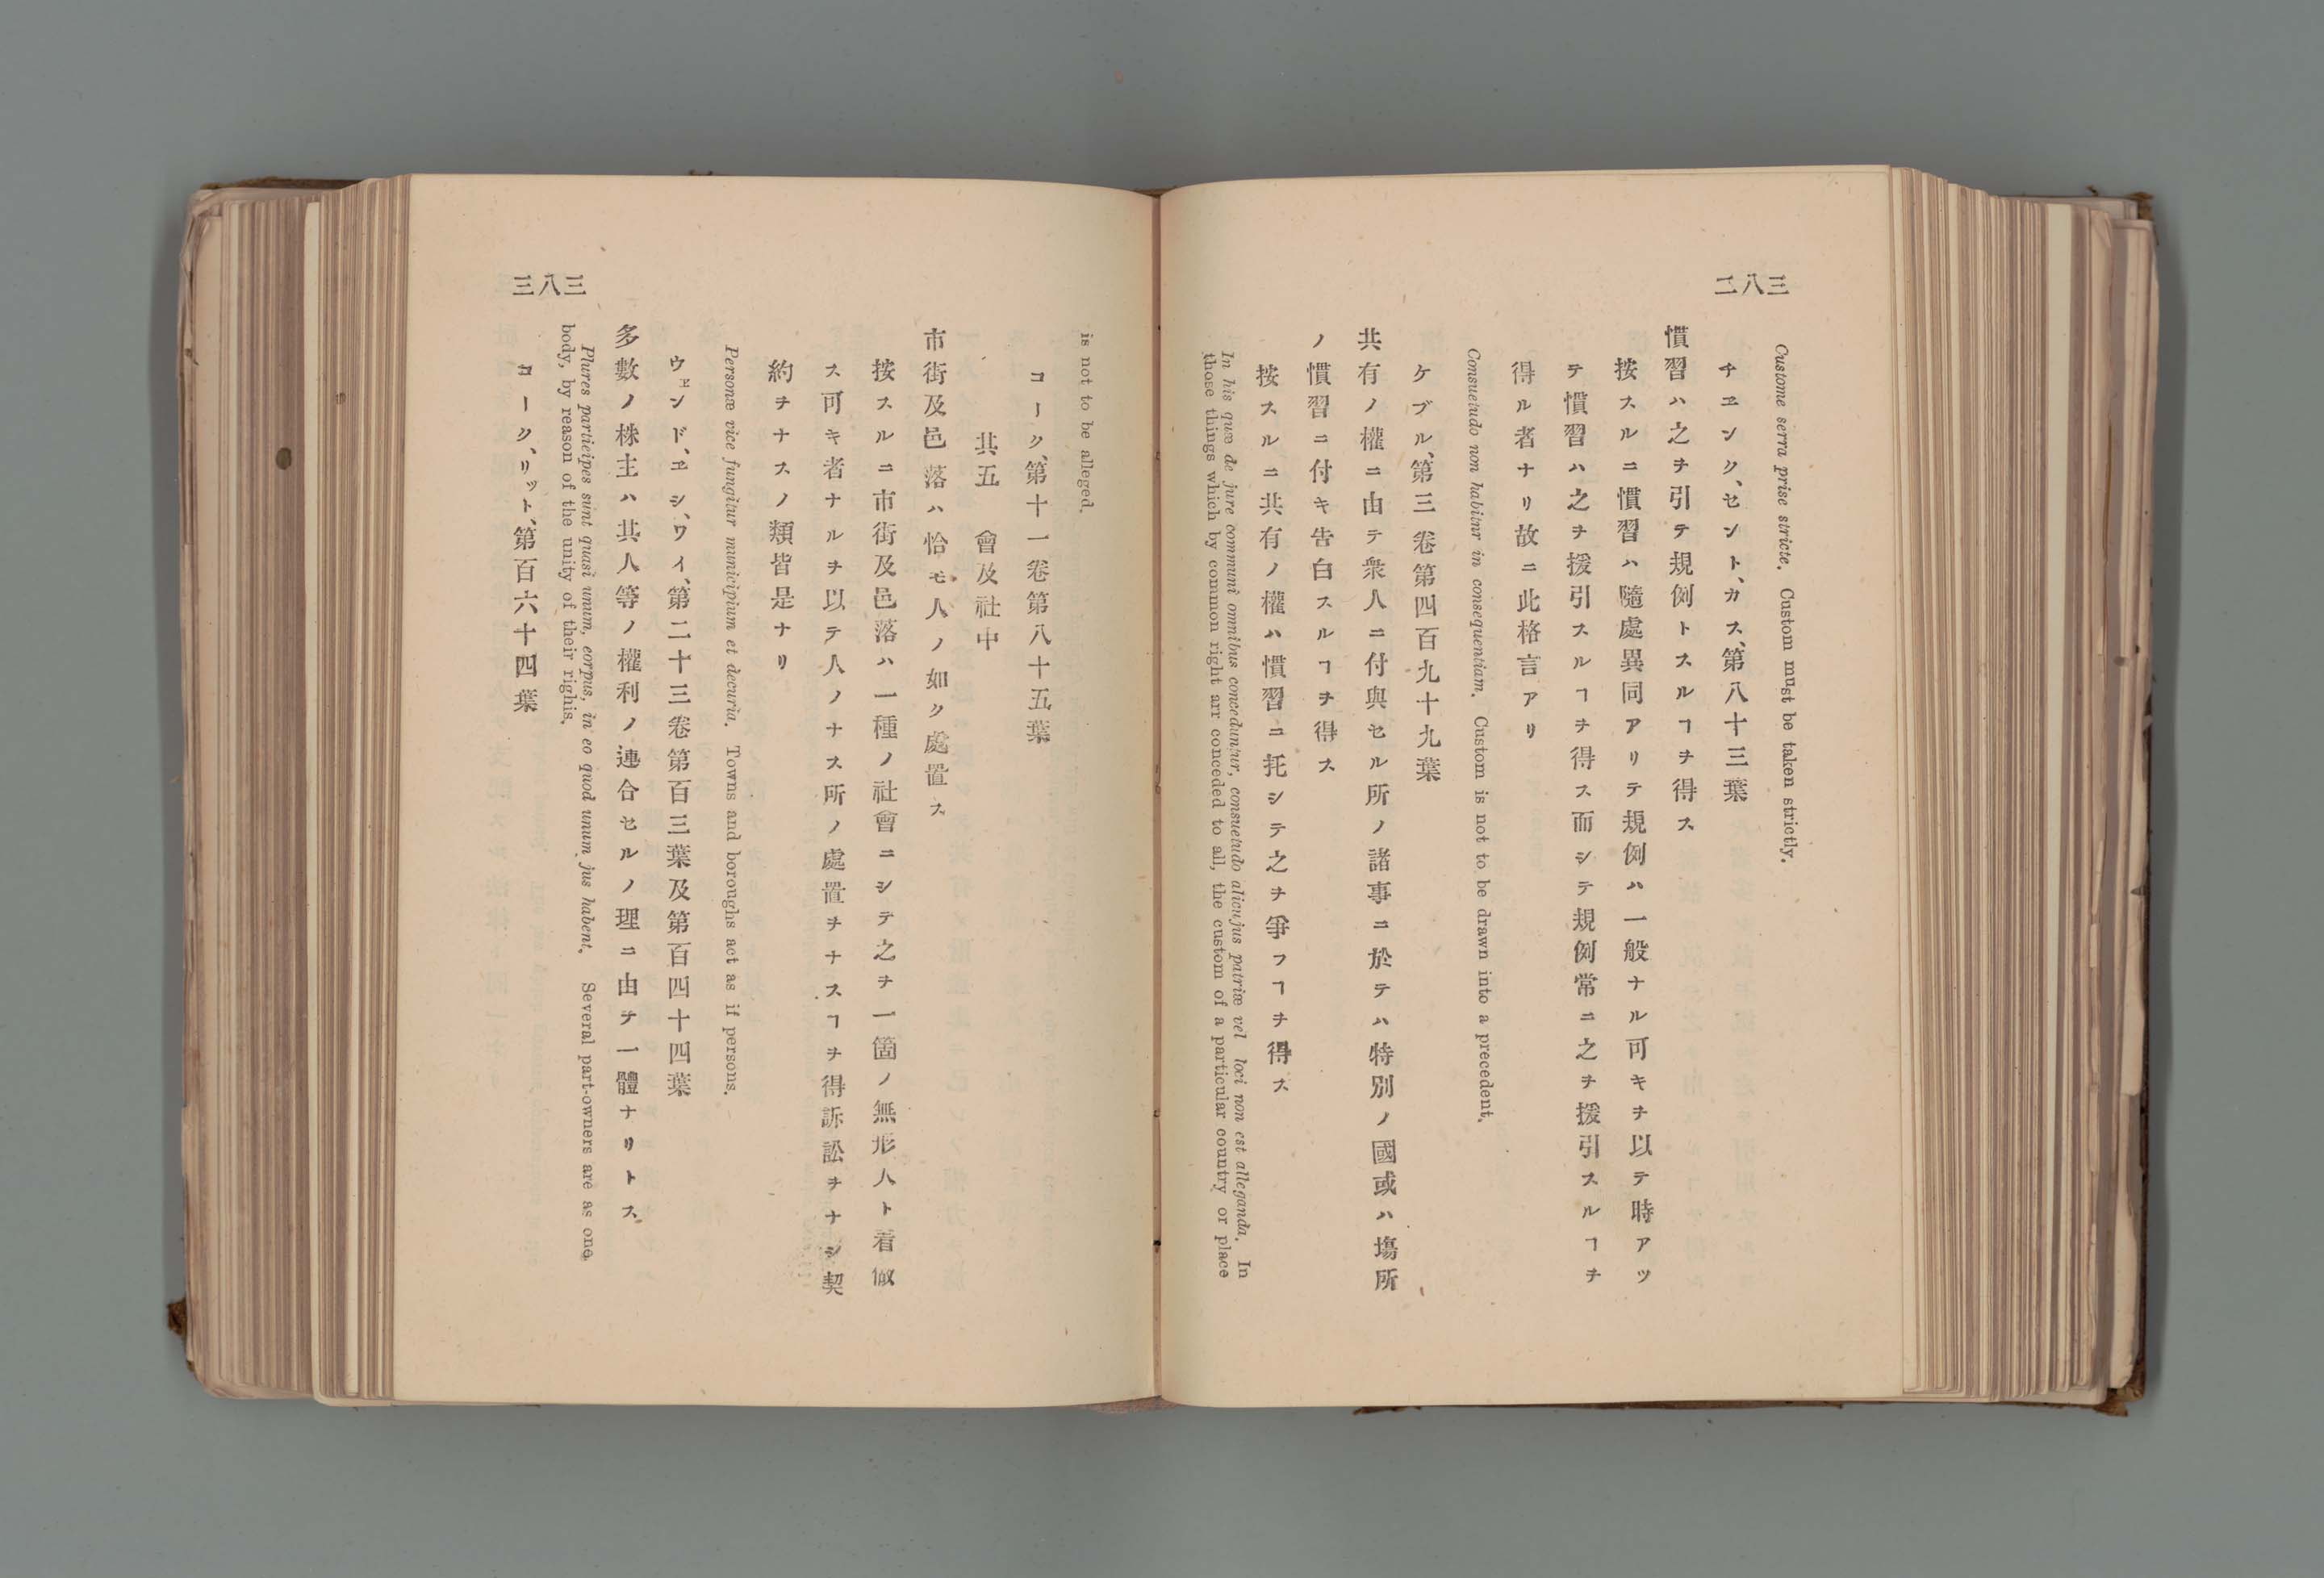 二八三
Custome serra prise stricte. Custom must be taken strictly.
チエンク、セント、カス、第八十三葉
慣習ハ之ヲ引テ規例トスルヿヲ得ス
按スルニ慣習ハ隨處異同アリテ規例ハ一般ナル可キヲ以テ時アツ
テ慣習ハ之ヲ援引スルヿヲ得ス而シテ規例常ニ之ヲ援引スルヿヲ
得ル者ナリ故ニ此格言アリ
Consuetudo non habitnr in consequentiam. Custom is not to be drawn into a precedent.
ケブル、第三卷第四百九十九葉
共有ノ權ニ由テ衆人ニ付與セル所ノ諸事ニ於テハ特別ノ國或ハ塲所
ノ慣習ニ付キ告白スルヿヲ得ス
按スルニ共有ノ權ハ慣習ニ托シテ之ヲ爭フヿヲ得ス
In his quæ de jure communi omnibus conceduntur, consuetudo alicujus patriæ vel loci non est alleganda. In
those things which by common right arr conceded to all, the custom of a particular country or place
三八三
is not to be alleged.
コーク、第十一卷第八十五葉
其五 會及社中
市街及邑落ハ恰モ人ノ如ク處置ス
按スルニ市街及邑落ハ一種ノ社會ニシテ之ヲ一箇ノ無形人ト看做
ス可キ者ナルヲ以テ人ノナス所ノ處置ヲナスヿヲ得訴訟ヲナシ契
約ヲナスノ類皆是ナリ
Personæ vice fungitur municipium et decuria. Towns and boroughs act as if persons.
ウェンド、エシ、ワイ、第二十三卷第百三葉及第百四十四葉
多數ノ株主ハ其人等ノ權利ノ連合セルノ理ニ由テ一體ナリトス
Plures participes sunt quasi unum, corpus, in eo quod unum jus habent. Several part-owners are as one
body, by reason of the unity of their righis.
コーク、リット、第百六十四葉